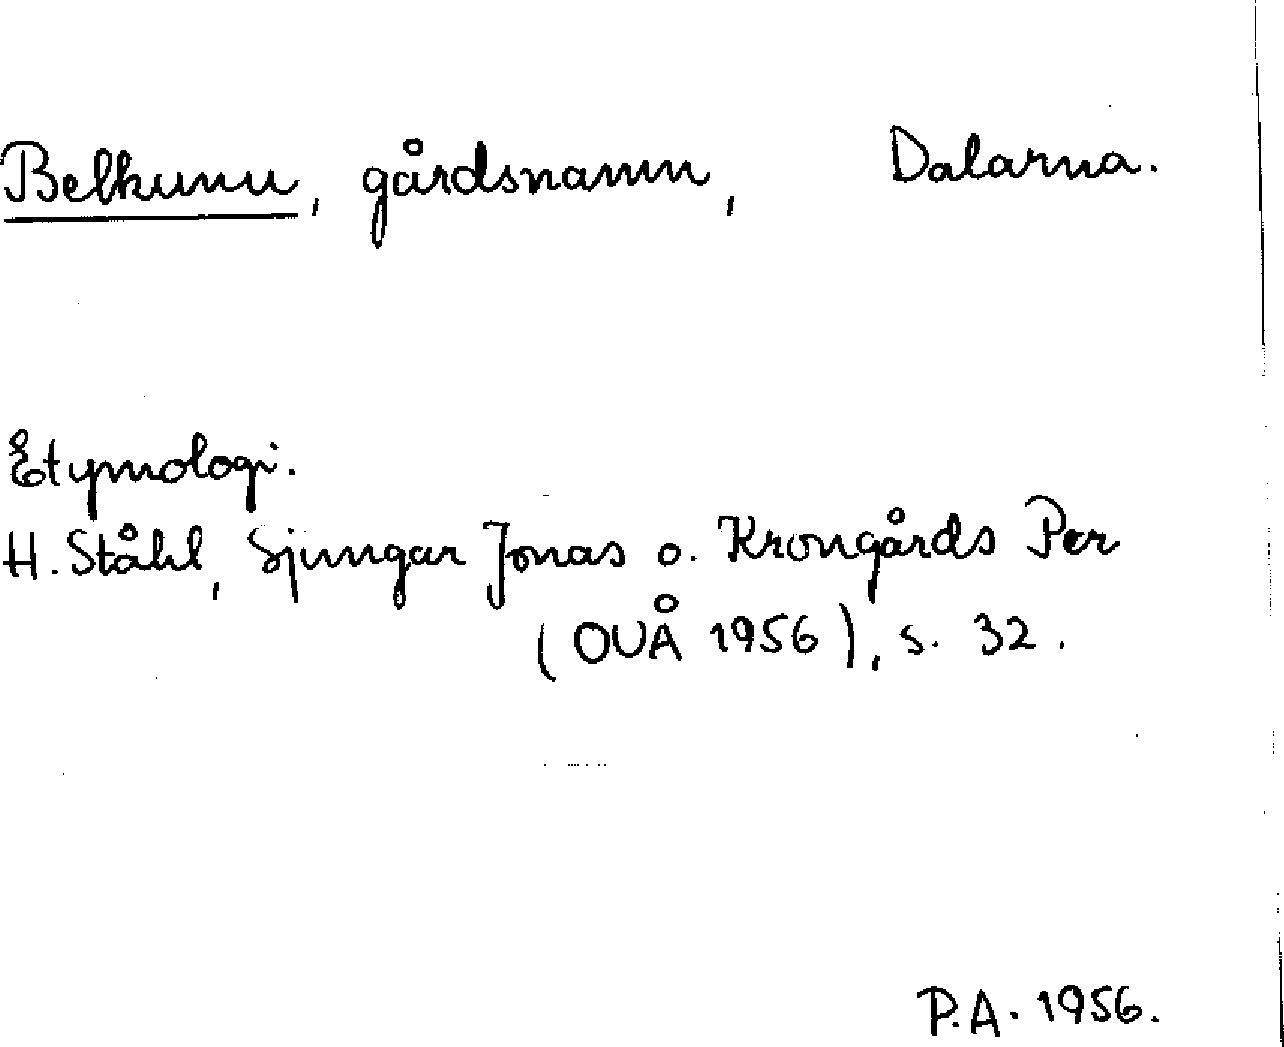 Belkunu, gårdsnamn, Dalarna.
Etymologi.
H. Ståhl, Sjungar Jonas o. Krongårds Per
(OUÅ 1956), s. 32.
P.A. 1956.